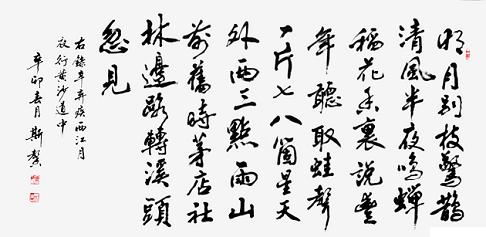 明月别枝驚鵲
清風半夜鳴蟬
稻花香裏說豐
年聽取蛙聲
一片七八箇星天
外兩三點雨山
前舊時茅店社
林邊路轉溪頭
忽見
右錄辛弃疾西江月
夜行黄沙道中
辛卯春月 斯